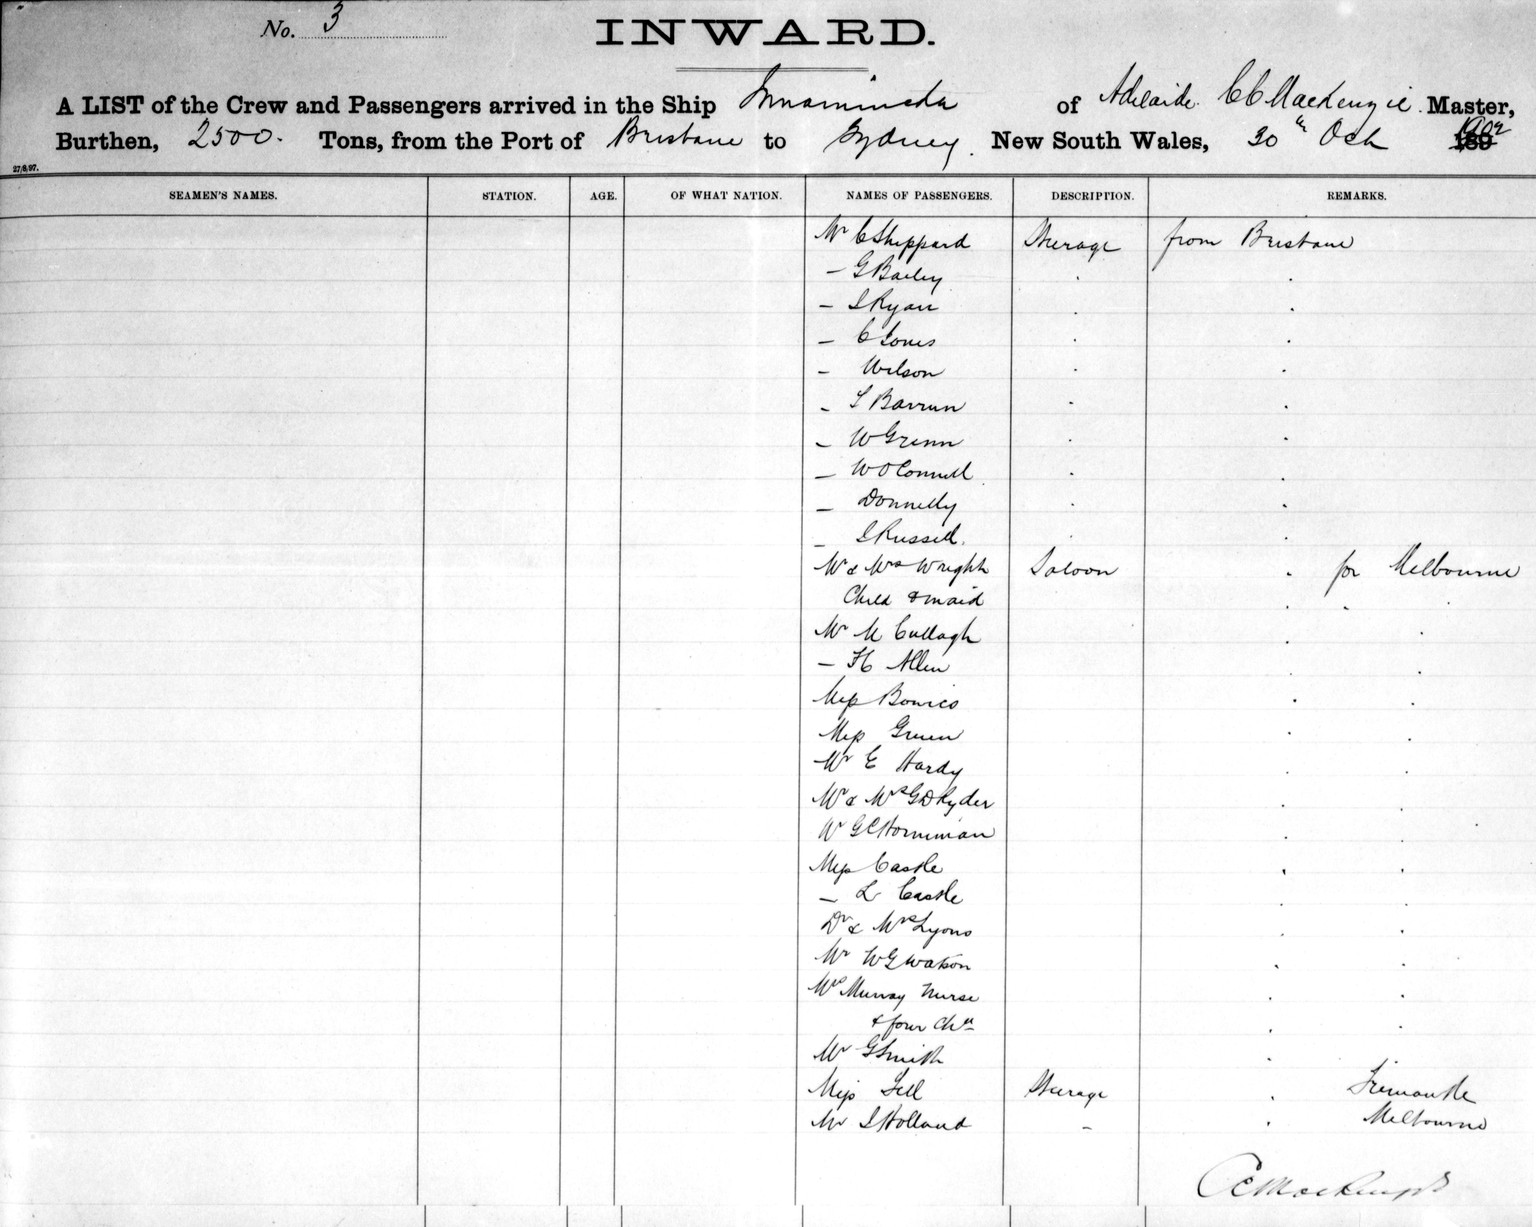 No. 3
INWARD.
A LIST of the Crew and Passengers arrived in the Ship Innamincka of Adelaide. CC Mackenzie Master,
Burthen, 2500. Tons, from the Port of Brisbane to Sydney. New South Wales, 30th Oct 1902
27/8/97.
SEAMEN'S NAMES. STATION. AGE. OF WHAT NATION. NAMES OF PASSENGERS. DESCRIPTION. REMARKS.
Mr C Sheppard Steerage from Brisbane
– G Bailey
– J Ryan
– C Jones
– Wilson
– Barrun
– W Green
– W O Connell
– Donnelly
– J Russell.
Mr & Mrs Wright Saloon . for Melbourne
Child & maid
Mr M Cullagh
– H C Allen
Miss Bowies
Miss Green
Mr E Hardy
Mr & Mrs G D Ryder
Mr G C Horniman
Miss Castle
– L Castle
Dr & Mrs Lyons
Mr W G Watson
Mrs Murray Nurse
& four Chn
Mr G Smith
Miss Steerage . Fremantle
Mr J Holland – . Melbourne
CC Mackenzie